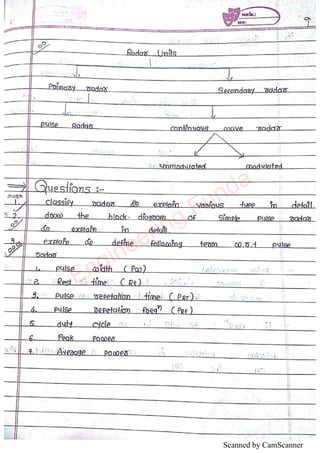 9
Radar Units
Primary radar Secondary radar
Pulse Radar continuous wave radar
unmodulated modulated
Questions :-
1. classify radar & explain various type in detail.
2. draw the block diagram of simple pulse radar
& explain in detail
3. explain & define following team w.r.t pulse
radar
1. Pulse width (Pw)
2. Rest time (Rt)
3. Pulse repetation time (PRT)
4. Pulse repetation freqⁿ (PRF)
5. duty cycle
6. Peak power
7. Average power
Engineering Funda
Scanned by CamScanner